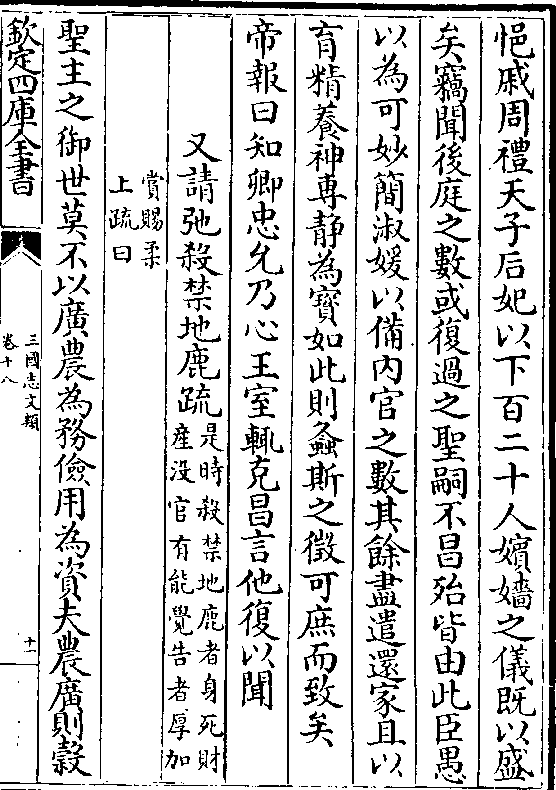 悒戚周禮天子后妃以下百二十人嬪嬙之儀既以盛
矣竊聞後庭之數或復過之聖嗣不昌殆皆由此臣愚
以為可妙簡淑媛以備内官之數其餘盡遣還家且以
育精養神専静為寳如此則螽斯之徴可庶而致矣
帝報曰知卿忠允乃心王室輒克昌言他復以聞
又請弛殺禁地鹿疏
是時殺禁地鹿者身死財
産没官有能覺告者厚加
賞賜柔
上疏曰
聖主之御世莫不以廣農為務儉用為資夫農廣則穀
欽定四庫全書
三國志文類
卷十八
十一